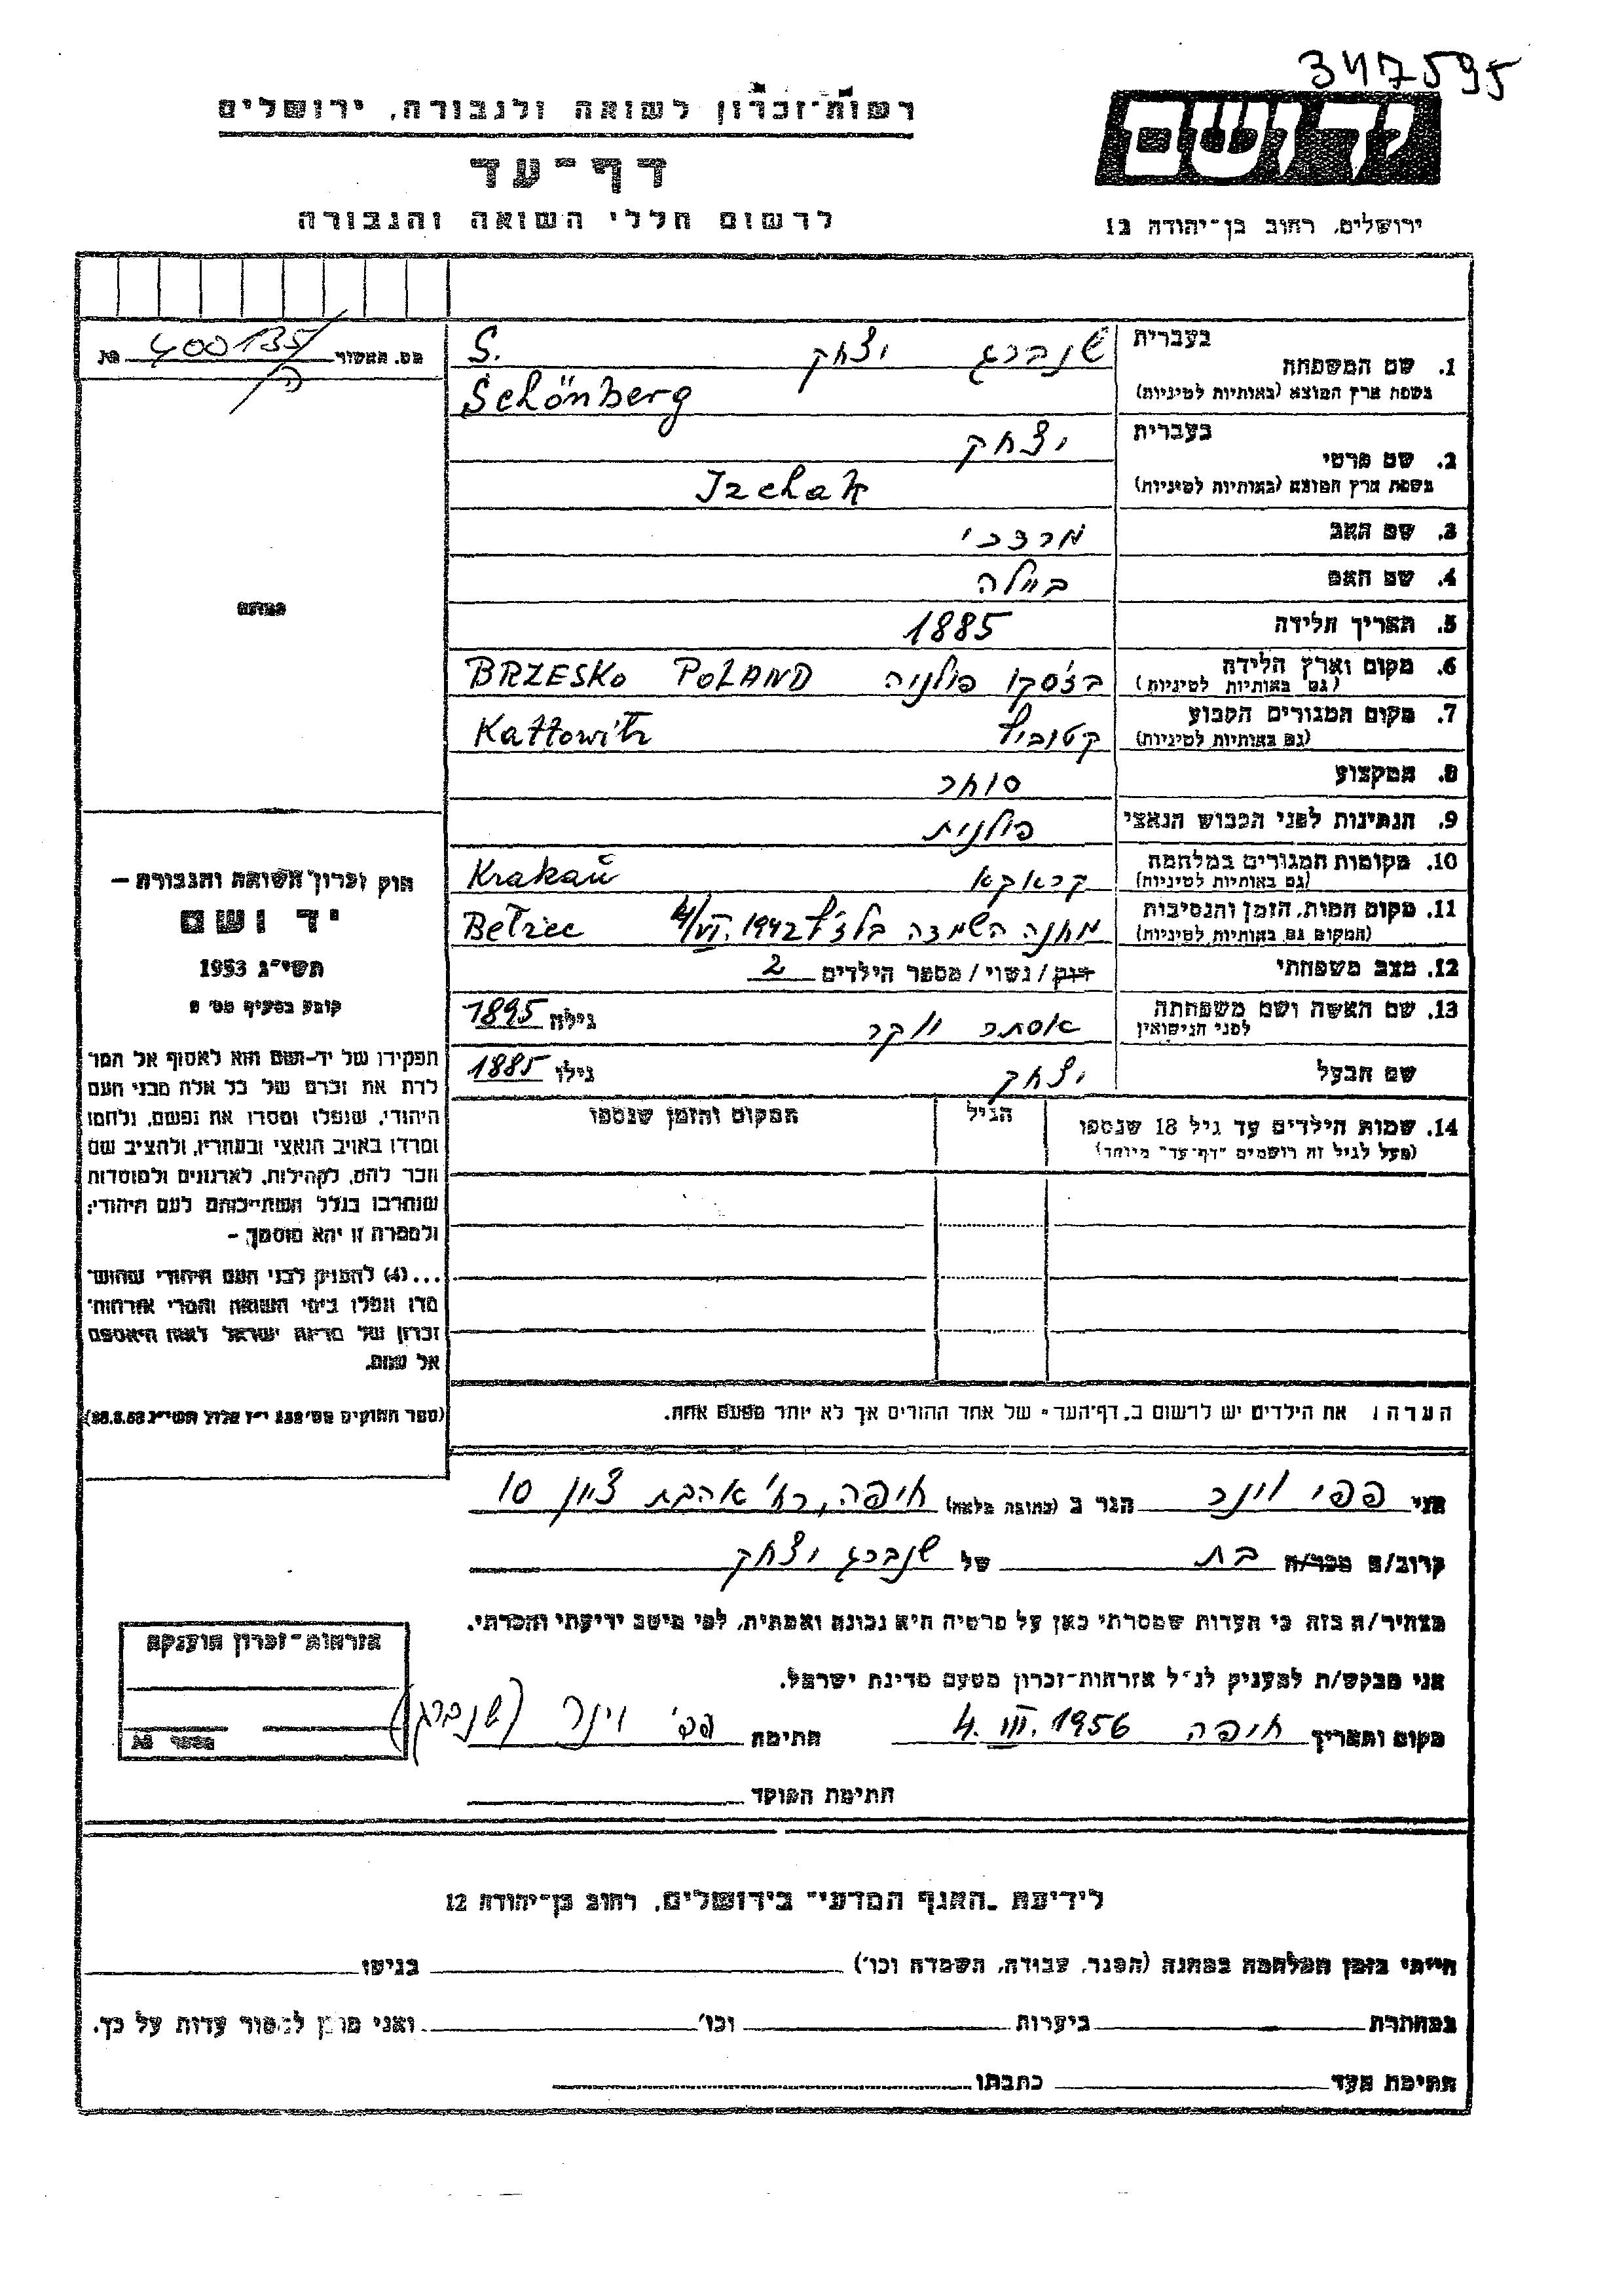 347595
רשות-זכרון לשואה ולגבורה, ירושלים
דף-עד
לרשום חללי השואה והגבורה
יד ושם
ירושלים, רחוב בן-יהודה 12
מס. האשור 400135 No.
בעברית
1. שם המשפחה
בשפת ארץ המוצא (באותיות לטיניות)
שנברג יצחק S.
Schönberg
בעברית
2. שם פרטי
בשפת ארץ המוצא (באותיות לטיניות)
יצחק
Izchak
3. שם האב מרדכי
4. שם האם ביילה
5. תאריך הלידה 1885
6. מקום וארץ הלידה
(גם באותיות לטיניות)
בז'סקו פולניה BRZESKO POLAND
7. מקום המגורים הקבוע
(גם באותיות לטיניות)
קטוביץ Kattowitz
8. המקצוע סוחר
9. הנתינות לפני הכבוש הנאצי פולנית
10. מקומות המגורים במלחמה
(גם באותיות לטיניות)
קראקא Krakau
11. מקום המות, הזמן והנסיבות
(המקום גם באותיות לטיניות)
מחנה השמדה בלז'ץ 4/VI. 1942 Bełzec
12. מצב משפחתי רוק / נשוי / מספר הילדים 2
13. שם האשה ושם משפחתה
לפני הנישואין
אסתר ווקר גילה 1895
שם הבעל יצחק גילו 1885
14. שמות הילדים עד גיל 18 שנספו
(מעל לגיל זה רושמים "דף-עד" מיוחד)
הגיל
המקום והזמן שנספו
הערה: את הילדים יש לרשום ב"דף-העד" של אחד ההורים אך לא יותר מפעם אחת.
חוק זכרון השואה והגבורה –
יד ושם
תשי"ג 1953
קובע בסעיף מס' 2
תפקידו של יד-ושם הוא לאסוף אל המו־
לדת את זכרם של כל אלה מבני העם
היהודי, שנפלו ומסרו את נפשם, ולחמו
ומרדו באויב הנאצי ובעוזריו, ולהציב שם
וזכר להם, לקהילות, לארגונים ולמוסדות
שנחרבו בגלל השתייכותם לעם היהודי;
ולמטרה זו יהא מוסמך –
...(4) להעניק לבני העם היהודי שהוש־
מדו ונפלו בימי השואה והמרי אזרחות־
זכרון של מדינת ישראל לאות היאספם
אל עמם.
(ספר החוקים מס' 132 י"ז אלול תשי"ג 28.8.53)
אני פפי וינר הגר ב (כתובת מלאה) חיפה, רח' אהבת ציון 10
קרוב/ה מכר/ה בת של שנברג יצחק
מצהיר/ה בזה כי העדות שמסרתי כאן על פרטיה היא נכונה ואמתית, לפי מיטב ידיעתי והכרתי.
אני מבקש/ת להעניק לנ"ל אזרחות-זכרון מטעם מדינת ישראל.
מקום ותאריך חיפה 4. III. 1956 חתימה פפי וינר (שנברג)
חתימת הפוקד
אזרחות-זכרון הוענקה
מספר No.
לידיעת "האגף המדעי" בירושלים, רחוב בן-יהודה 12
הייתי בזמן המלחמה במחנה (הסגר, עבודה, השמדה וכו') בגיטו
במחתרת ביערות וכו' ואני מוכן למסור עדות על כך.
חתימת העד כתבתו